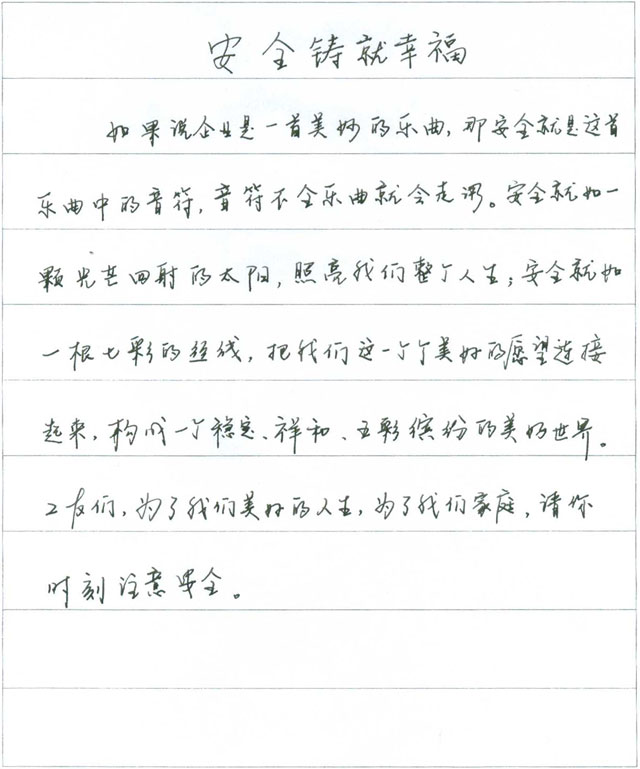 安全铸就幸福
如果说企业是一首美妙的乐曲，那安全就是这首
乐曲中的音符，音符不全乐曲就会走调。安全就如一
颗光芒四射的太阳，照亮我们整个人生；安全就如
一根七彩的丝线，把我们这一个个美好的愿望连接
起来，构成一个稳定、祥和、五彩缤纷的美好世界。
工友们，为了我们美好的人生，为了我们家庭，请你
时刻注意安全。